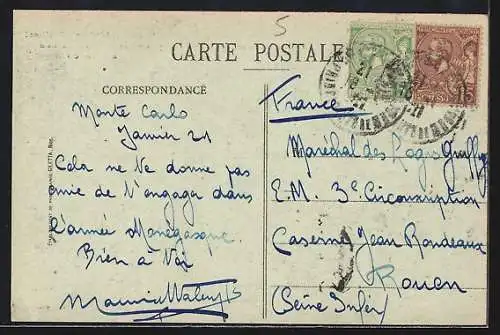 5
CARTE POSTALE
CORRESPONDANCE
Monte Carlo
Janvier 21
Cela ne te donne pas
envie de t'engager dans
l'année Monégasque.
Bien à toi
Maurice
France
Maréchal des Logis
E.M. 3e Circonscription
Caserne Jean Rondeaux
Rouen
(Seine Infér)